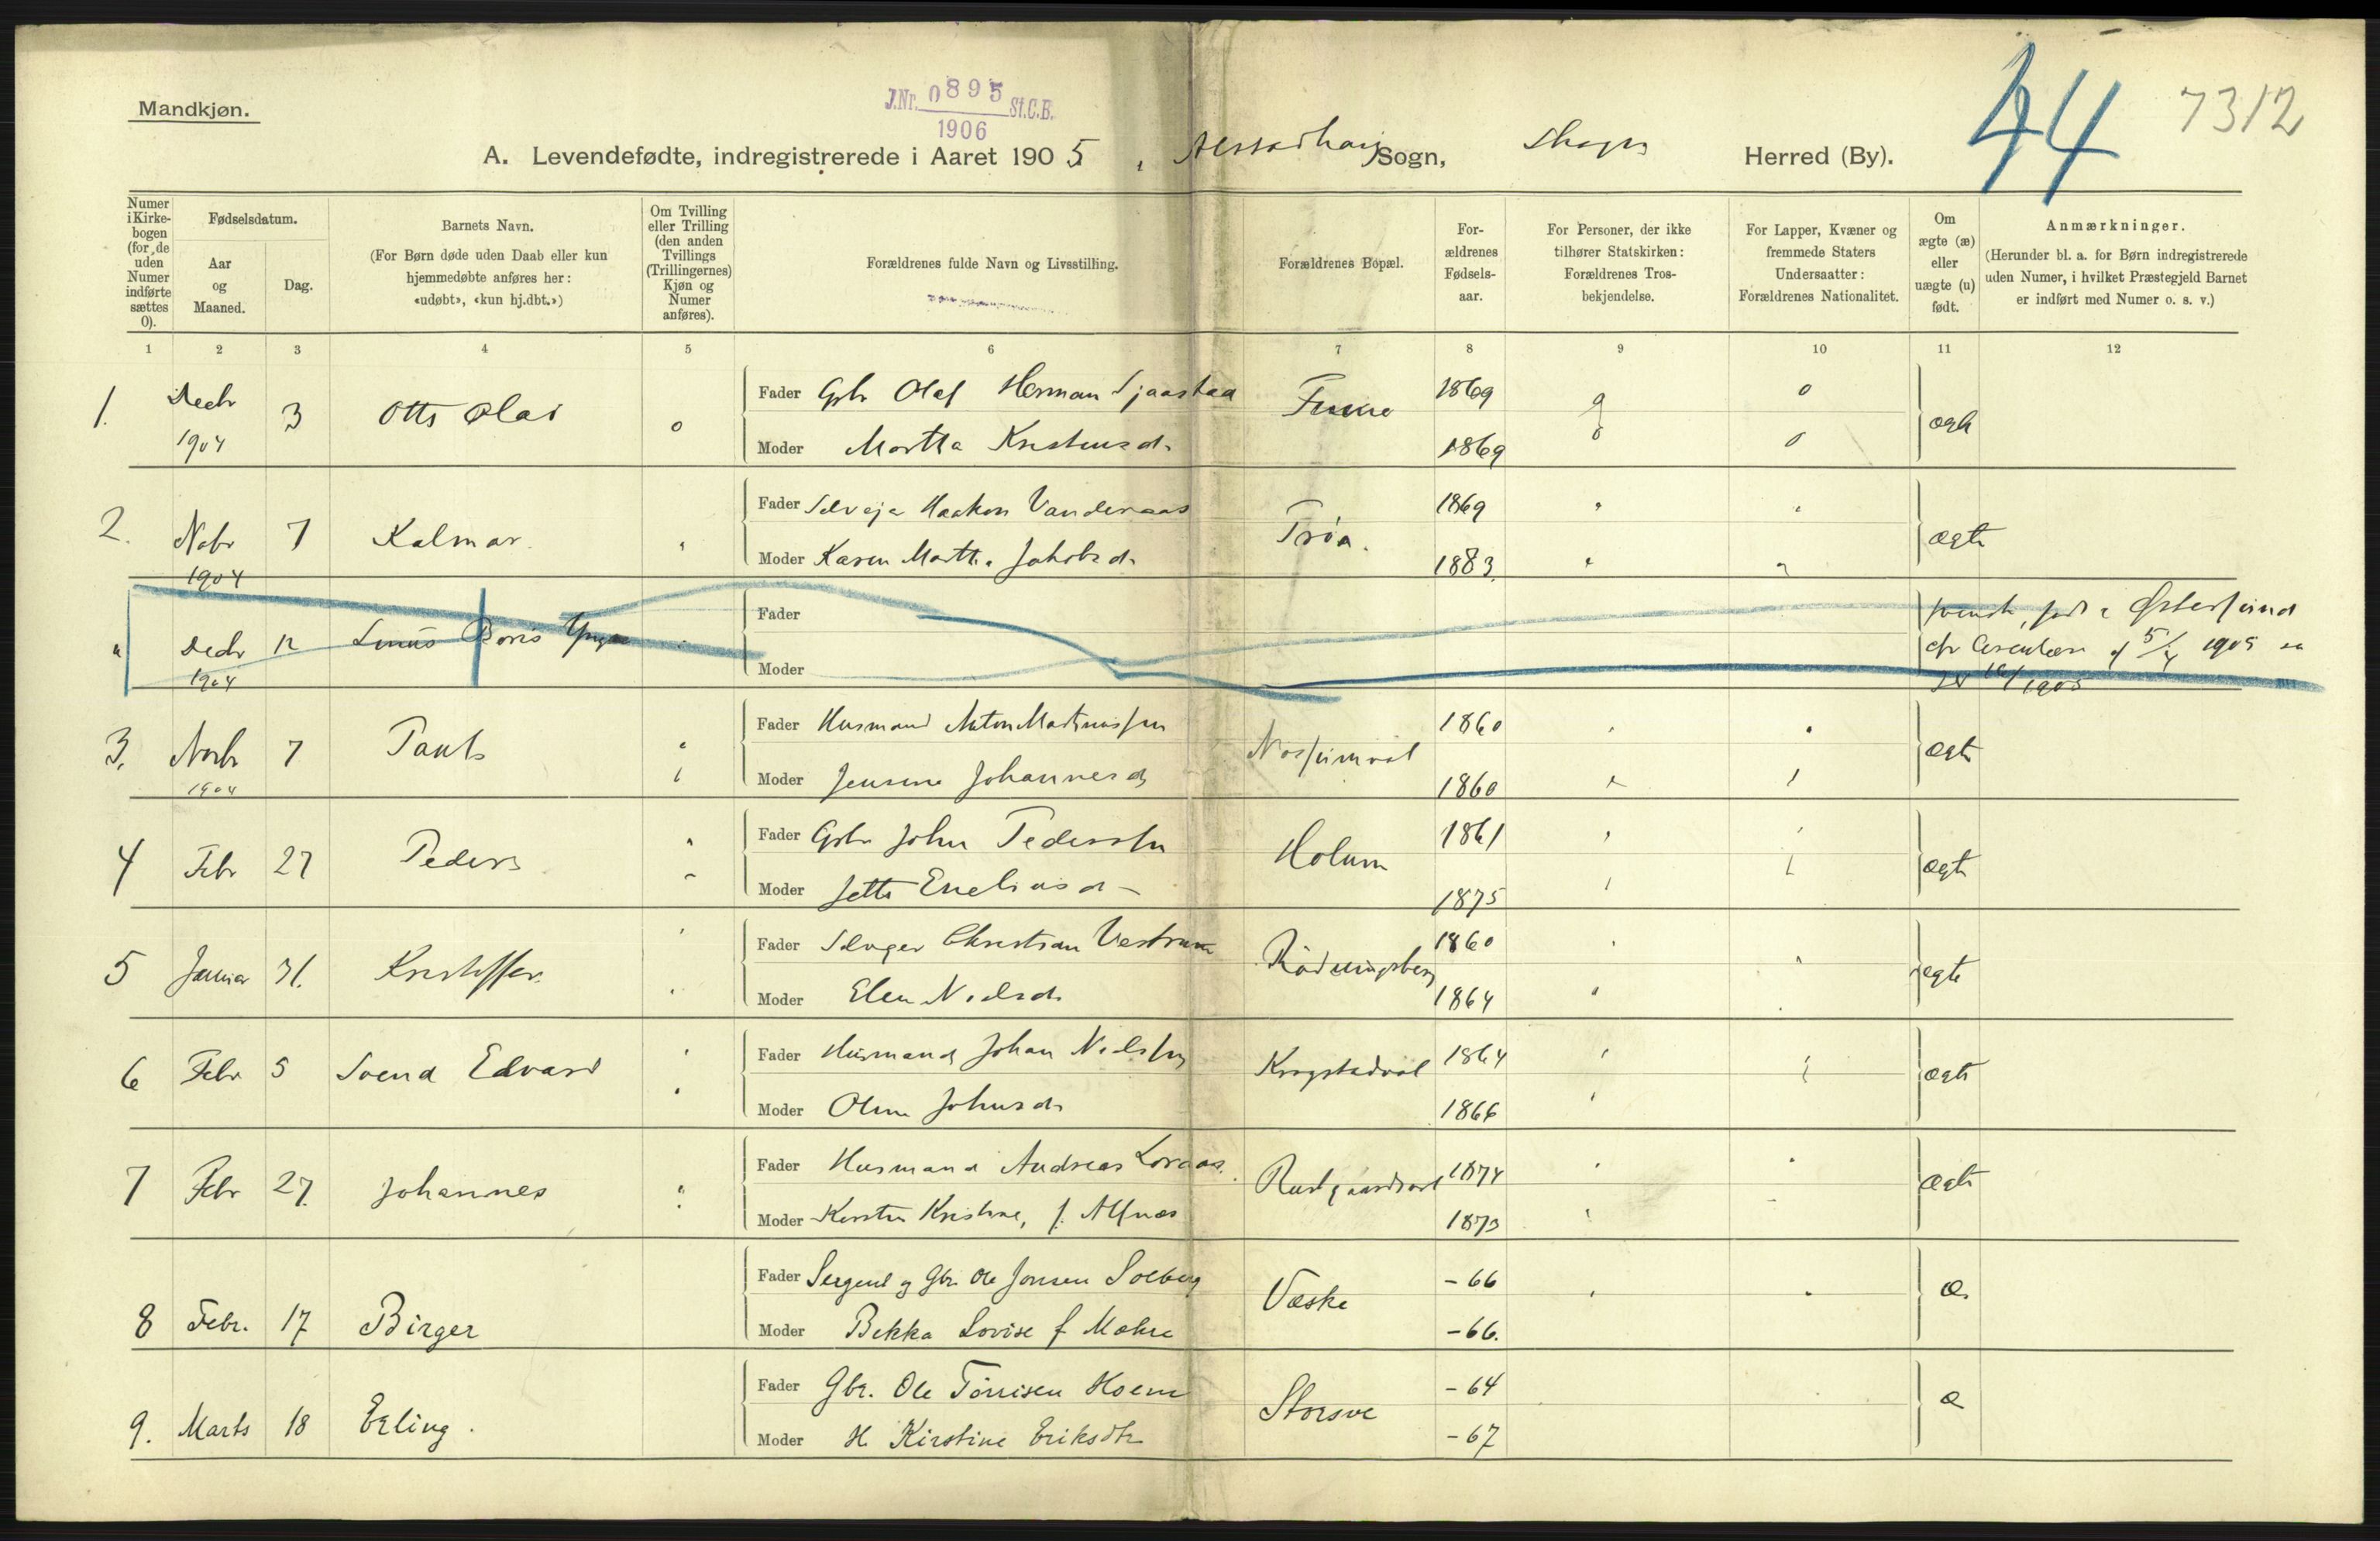 Mandkjøn.
J.Nr. 0895 St.C.B.
1906
44 7312
A. Levendefødte, indregistrerede i Aaret 1905, Alstadhaug Sogn, Skogn Herred (By).
Numer i Kirke-bogen (for de uden Numer indførte sættes 0).
Fødselsdatum.
Aar og Maaned.
Dag.
Barnets Navn.
(For Børn døde uden Daab eller kun hjemmedøbte anføres her: «udøbt», «kun hj.dbt.»)
Om Tvilling eller Trilling (den anden Tvillings (Trillingernes) Kjøn og Numer anføres).
Forældrenes fulde Navn og Livsstilling.
Forældrenes Bopæl.
For-ældrenes Fødsels-aar.
For Personer, der ikke tilhører Statskirken: Forældrenes Tros-bekjendelse.
For Lapper, Kvæner og fremmede Staters Undersaatter: Forældrenes Nationalitet.
Om ægte (æ) eller uægte (u) født.
Anmærkninger.
(Herunder bl. a. for Børn indregistrerede uden Numer, i hvilket Præstegjeld Barnet er indført med Numer o. s. v.)
1 2 3 4 5 6 7 8 9 10 11 12
1. Decbr 1904 3 Otto Olai o
Fader Gbr Olaf Herman 1869 o
Moder Martha Kristensd. 1869 o o
2. Nobr 1904 7 Kalmar "
Fader Selveier Haakon Vanderaas Trøa. 1869 " "
Moder Karen Martha Jakobsd. 1883. " " ægte
" Decbr 1904 12 Linus Boris Yngve
Fader
Moder
født i Østersund
5/4 1905
3. Novbr 1904 7 Paul
Fader Husmand Anton Martinussen 1860 " "
Moder Jensine Johannesd. 1860 ægte
4 Febr 27 Peder
Fader Gbr John Pederssen Holum 1861
Moder Jette Eneliusd. 1875 ægte
5 Januar 31. Kristoffer.
Fader Selveier Christian 1860
Moder Elen Nielsd. 1864 ægte
6 Febr 5 Svend Edvard
Fader Husmand Johan Nielssen 1864
Moder Oline Johnsd. 1866 ægte
7 Febr 27. Johannes
Fader Husmand Andreas Loraas. 1874
Moder Kirstin Kristine, f. Alfnæs 1873 ægte
8 Febr. 17 Birger
Fader Sergent og Gbr. Ole Jonsen Solberg Væske -66
Moder Bekka Lovise f -66. æ.
9. Marts 18 Erling.
Fader Gbr. Ole Tørrisen Hoem Storsve -64
Moder H. Kirstine Eriksdtr -67 æ